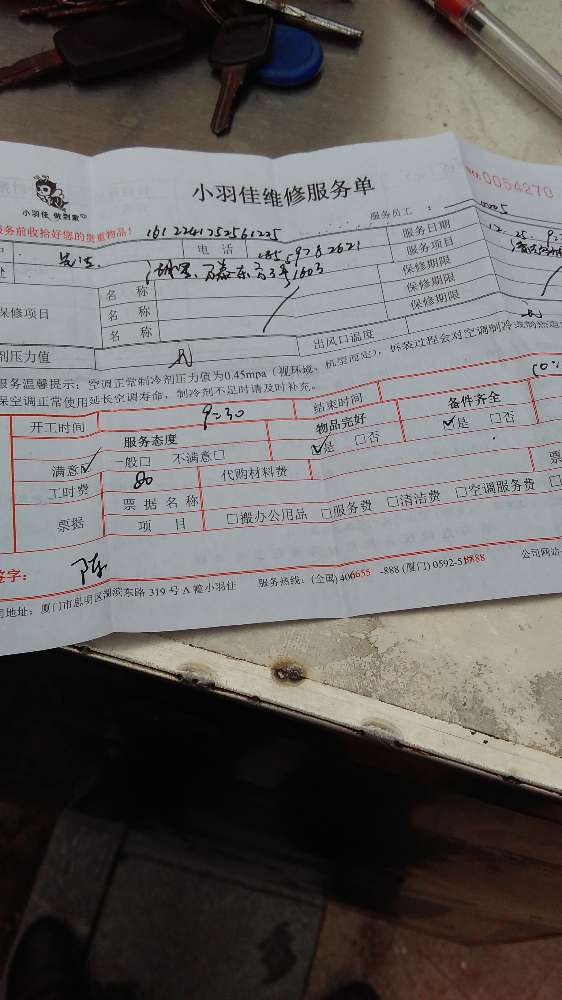 小羽佳 做到家
小羽佳维修服务单
NO.0054270
服务前收拾好您的贵重物品!
161224175256 1225
服务员工:
电话
服务日期
12.25. 9:
服务项目
名称
保修期限
保修项目
名称
保修期限
名称
保修期限
剂压力值
出风口温度
服务温馨提示:空调正常制冷剂压力值为0.45mpa(视环境、机型而定),拆装过程会对空调制冷
保空调正常使用延长空调寿命,制冷剂不足时请及时补充。
开工时间
9:30
结束时间
10:
服务态度
物品完好
备件齐全
满意 一般□ 不满意□
是 □否
是 □否
工时费
80
代购材料费
票据
票据名称
项目
□搬办公用品 □服务费 □清洁费 □空调服务费
签字:
陈
司地址:厦门市思明区湖滨东路 319 号 A 幢小羽佳
服务热线:(全国) 4006655-888 (厦门) 0592-5
公司网站